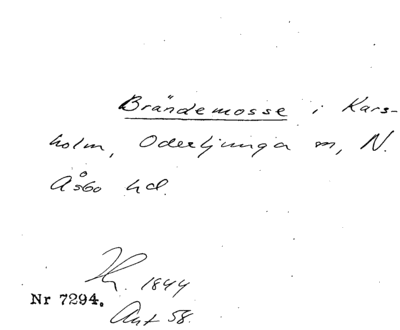 Brändemosse i Kars-
holm, Oderljunga sn, N.
Åsbo hd.
1844
Nr 7294.
Ant 58.